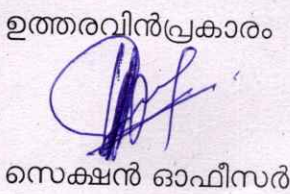 ഉത്തരവിൻപ്രകാരം
സെക്ഷൻ ഓഫീസർ